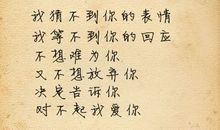 我猜不到你的表情
我等不到你的回应
不想难为你
又不想放弃你
决定告诉你
对不起我爱你